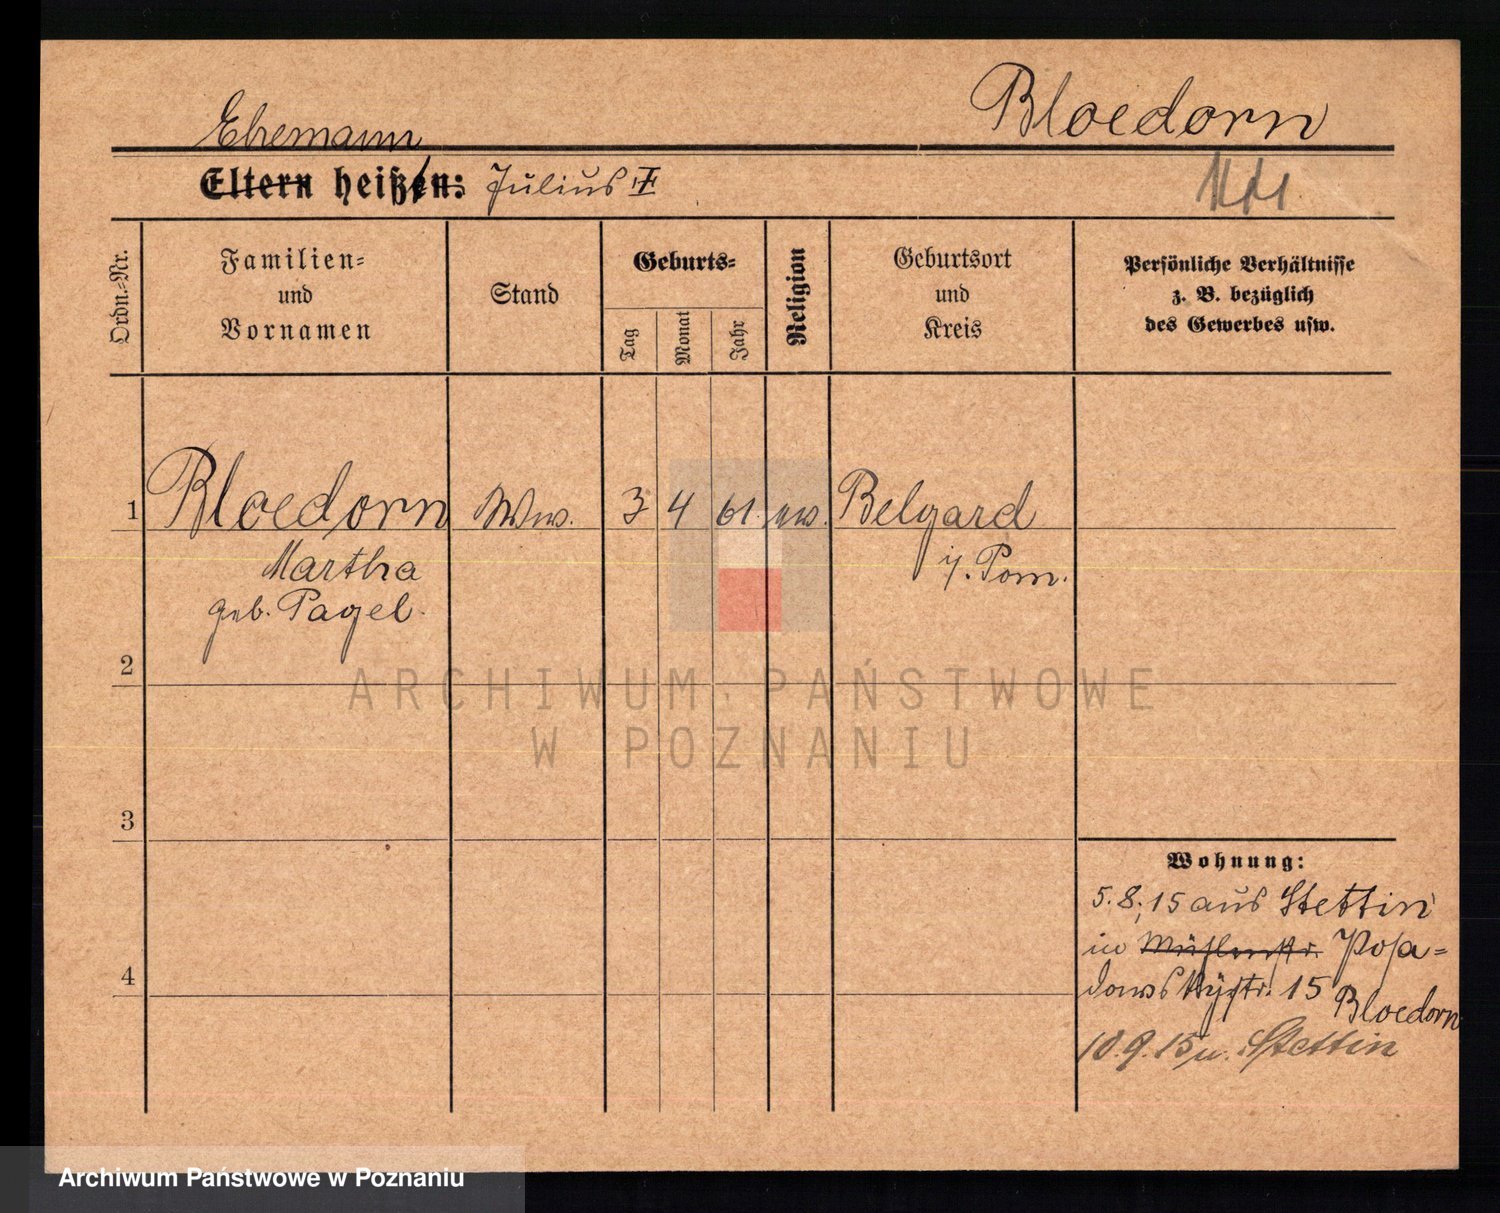 Bloedorn
Ehemann
Eltern heißen: Julius II
Ordn.-Nr.
Familien-
und
Vornamen
Stand
Geburts-
Tag
Monat
Jahr
Religion
Geburtsort
und
Kreis
Persönliche Verhältnisse
z. B. bezüglich
des Gewerbes usw.
1 Bloedorn Wwe. 3 4 61. ev. Belgard
Martha i/. Pom.
geb. Pagel.
2
ARCHIWUM PAŃSTWOWE
W POZNANIU
3
Wohnung:
5.8.15 aus Stettin
in Mühlenstr. Posa-
4
dowskystr. 15 Bloedorn
10.9.15 n. Stettin
Archiwum Państwowe w Poznaniu